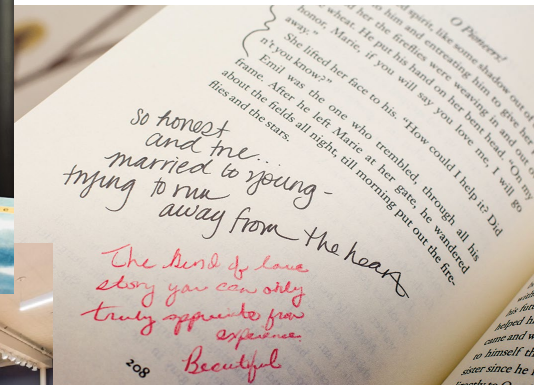 O Pioneers!
spirit, like some shadow out of
him and entreating him to give her
her the fireflies were weaving in and out o
wheat. He put his hand on her bent head. "On my
honor, Marie, if you will say you love me, I will go
away."
She lifted her face to his. "How could I help it? Did
n't you know?"
Emil was the one who trembled, through all his
frame. After he left Marie at her gate, he wandered
about the fields all night, till morning put out the fire-
flies and the stars.
so honest
and true...
married to young-
trying to run
away from the heart
The kind of love
story you can only
truly appreciate from
experience
Beautiful
208
his fut
helped hi
came and w
to himself th
sister since he
directly to O